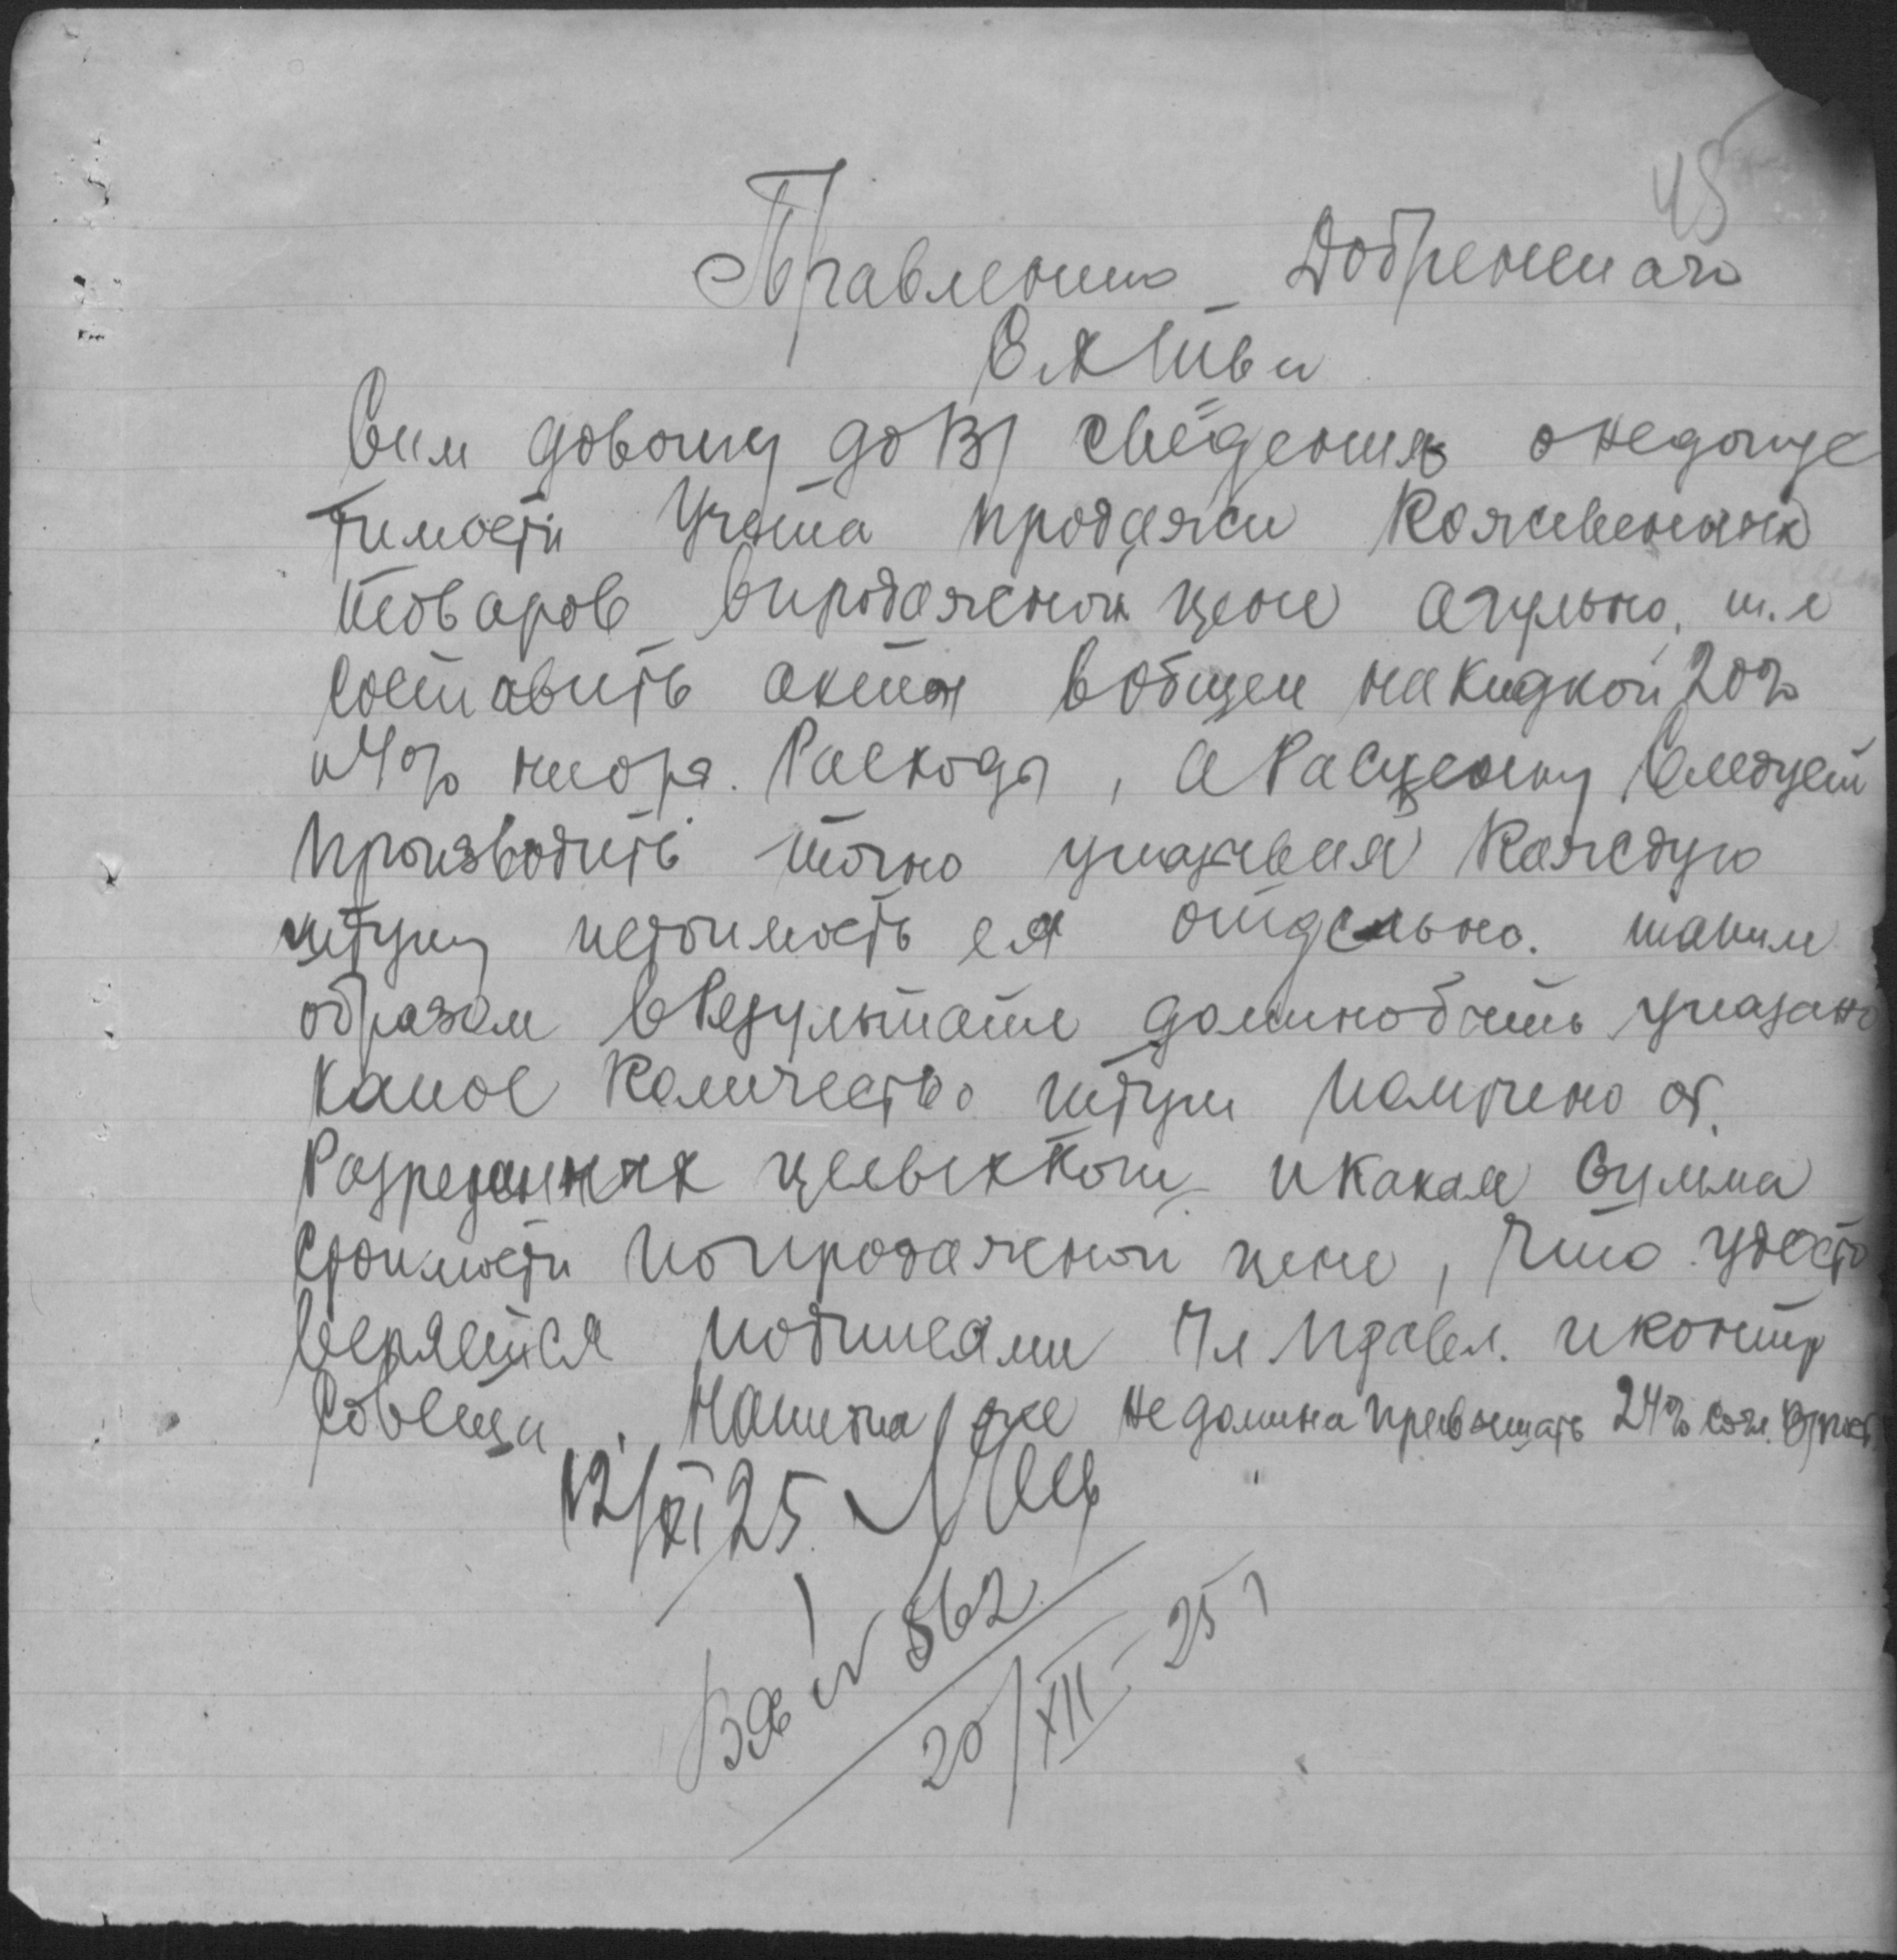 45
Правлению Добренскаго
С.х. Т-ва
Сим довожу до В/ сведения о недопус
тимости учета продажи кожевенных
товаров в продажной цене огульно, т.е
составить актом в общем накидкой 20%
и 4% на орг. Расходы, а Расценку следует
производить точно указывая каждую
штуку и стоимость ея отдельно. таким
образом в Результате должно быть указано
какое количество штук получено от
Разрезанных целых кож и какая сумма
стоимости по продажной цене, что удосто
веряется подписями Чл Правл. и контр
совета. Нацитка же не должна превышать 24% согл.
12/XI 25
Вх № 562
20/XII-25 г